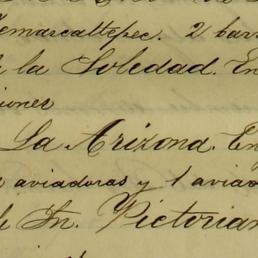 Temascaltepec. 2 barr
la Soledad. En
iones
La Arizona. En
aviadoras y 1 aviad
Sn. Victorian